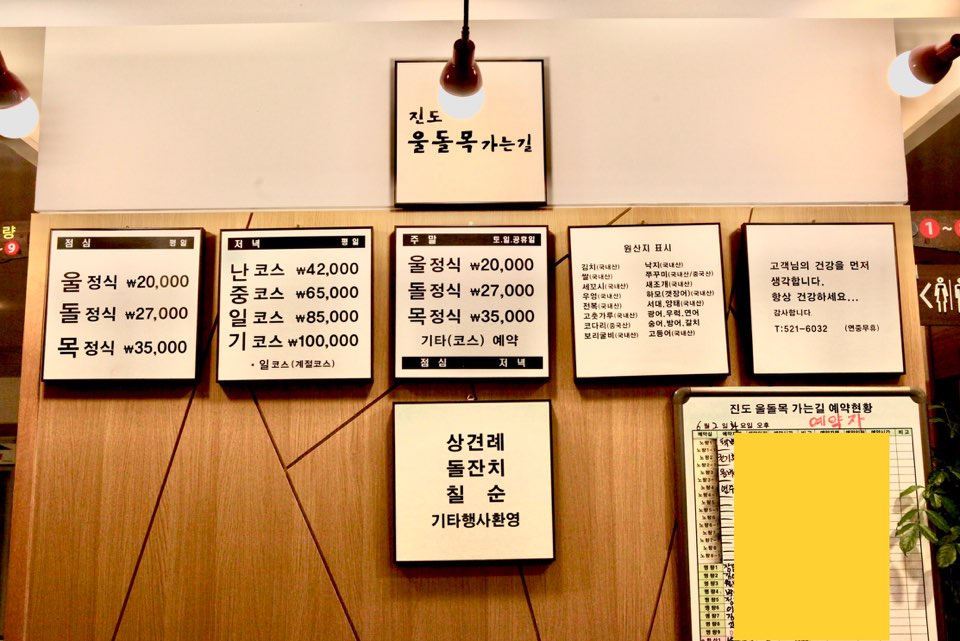 진도
울돌목가는길
점심 평일
울정식 ₩20,000
돌정식 ₩27,000
목정식 ₩35,000
저녁 평일
난코스 ₩42,000
중코스 ₩65,000
일코스 ₩85,000
기코스 ₩100,000
* 일코스(계절코스)
주말 토.일.공휴일
울정식 ₩20,000
돌정식 ₩27,000
목정식 ₩35,000
기타(코스) 예약
점심 저녁
원산지 표시
김치(국내산)
쌀(국내산)
세꼬시(국내산)
우엉(국내산)
전복(국내산)
고춧가루(국내산)
코다리(중국산)
보리굴비(국내산)
낙지(국내산)
쭈꾸미(국내산/중국산)
새조개(국내산)
하모(갯장어)(국내산)
서대,양태(국내산)
광어,우럭,연어
숭어,방어,갈치
고등어(국내산)
고객님의 건강을 먼저
생각합니다.
항상 건강하세요...
감사합니다
T:521-6032 (연중무휴)
상견례
돌잔치
칠 순
기타행사환영
진도 울돌목 가는길 예약현황
6월 2일 요일 오후 예약자
량
~9
1~